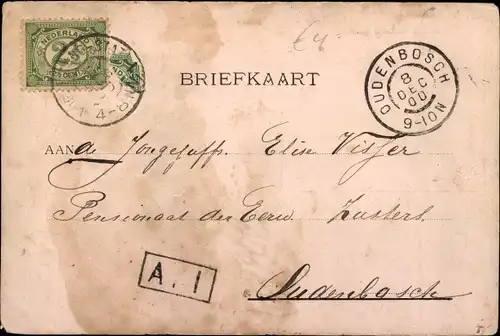 €4
NEDERLAND
2½
4-8N
BRIEFKAART
OUDENBOSCH
8
DEC
00
9-10N
AAN
Jongejuffr. Elise Visser
Pensionaat der Eerw. Zusters
A. 1
Oudenbosch